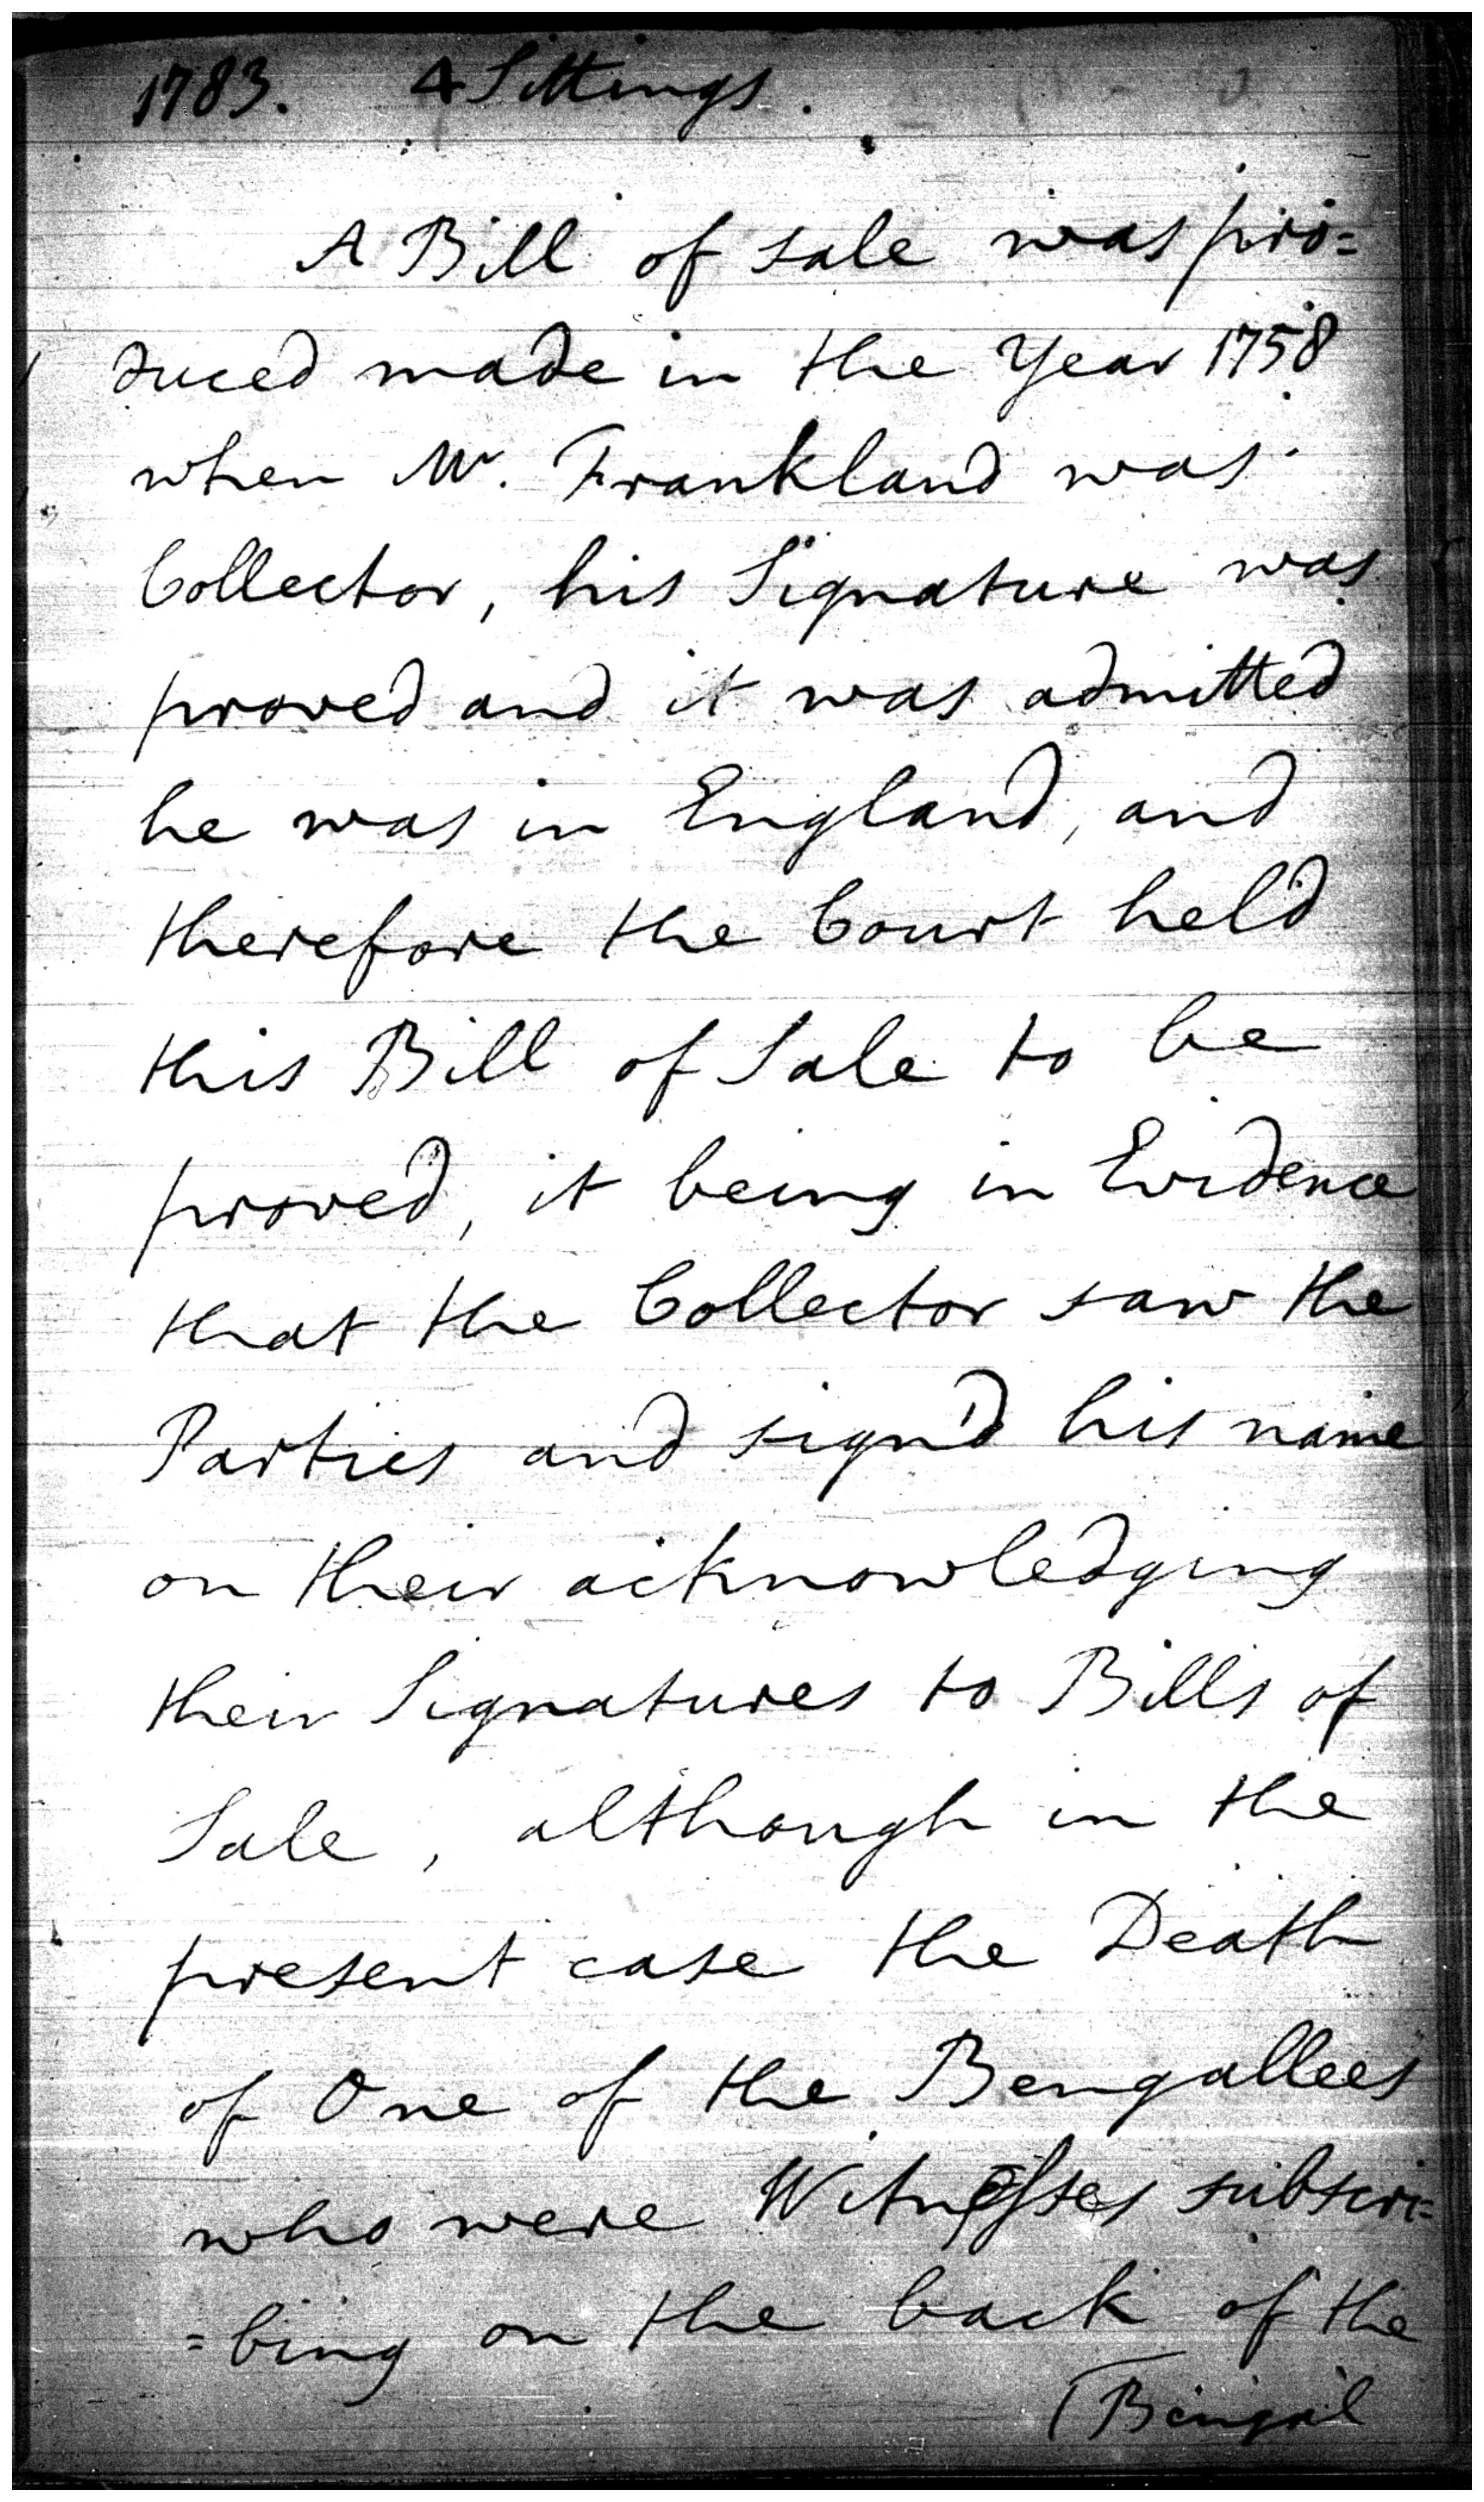 1783. 4 Sittings.
A Bill of sale was pro=
duced made in the Year 1758
when Mr. Frankland was
Collector, his Signature was
proved and it was admitted
he was in England, and
therefore the Court held
this Bill of Sale to be
proved, it being in Evidence
that the Collector saw the
Parties and sign'd his name
on their acknowledging
their Signatures to Bills of
Sale, although in the
present case the Death
of One of the Bengallees
who were Witnesses subscri=
=bing on the back of the
(Bengal